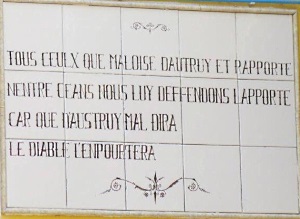 TOUS CEULX QUE MALOISE DAUTRUY ET RAPPORTE
NENTRE CEANS NOUS LUY DEFFENDONS LAPPORTE
CAR QUE DAUSTRUY MAL DIRA
LE DIABLE L'ENPOURTERA